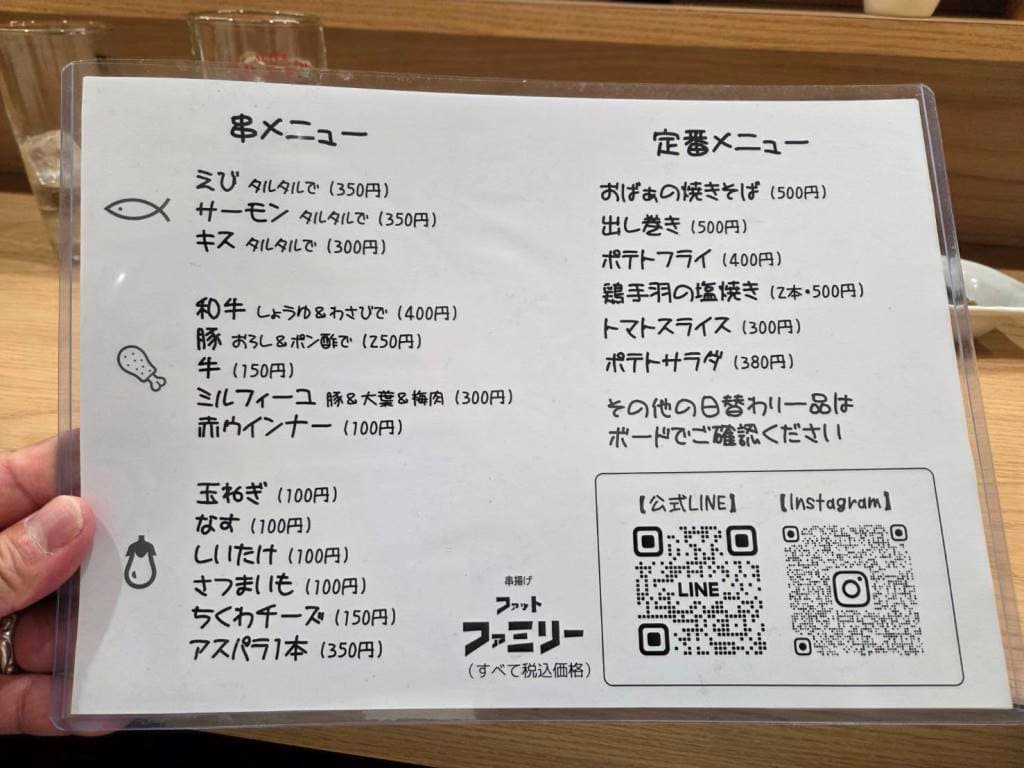 串メニュー
えび タルタルで (350円)
サーモン タルタルで (350円)
キス タルタルで (300円)
和牛 しょうゆ&わさびで (400円)
豚 おろし&ポン酢で (250円)
牛 (150円)
ミルフィーユ 豚&大葉&梅肉 (300円)
赤ウインナー (100円)
玉ねぎ (100円)
なす (100円)
しいたけ (100円)
さつまいも (100円)
ちくわチーズ (150円)
アスパラ1本 (350円)
定番メニュー
おばぁの焼きそば (500円)
出し巻き (500円)
ポテトフライ (400円)
鶏手羽の塩焼き (2本・500円)
トマトスライス (300円)
ポテトサラダ (380円)
その他の日替わり一品は
ボードでご確認ください
串揚げ
ファット
ファミリー
(すべて税込価格)
【公式LINE】
LINE
【Instagram】